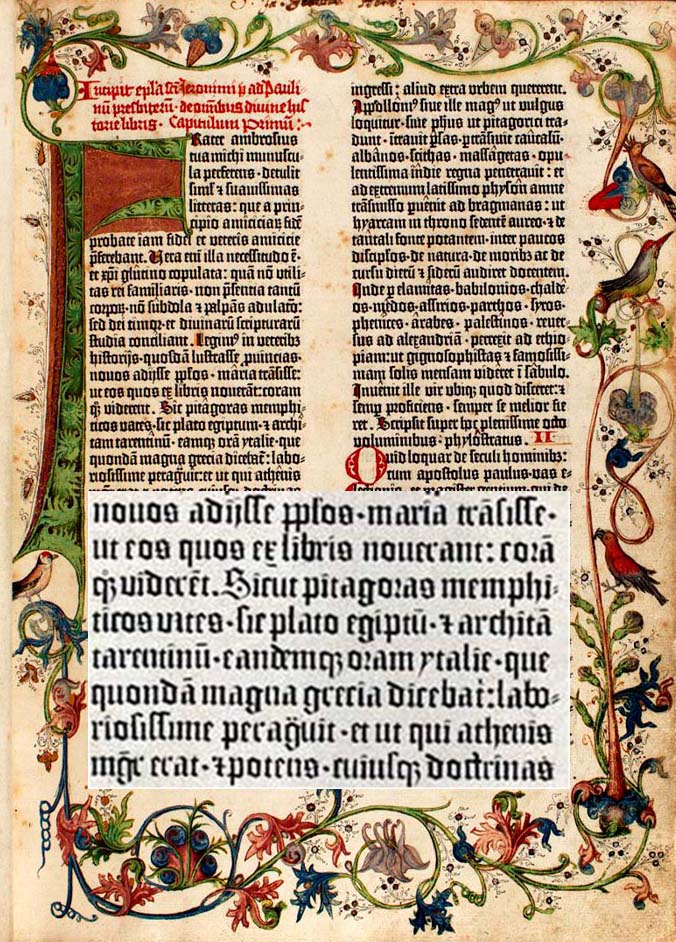 Incipit epl'a sc̄i Jeronimi p̄ ad Pauli
nū presbiterū · de omībus divine his
torie libris · Capitulum Primum:
Rater ambrosius
tua michi munuscu
la perferens · detulit
siml' ⁊ suavissimas
litteras: que a prin-
cipio amiciciaꝝ fidē
probate iam fidei et veteris amicicie
p̄ferebant. Vera em̄ illa necessitudo ē·
et xp̄i glutino copulata: quā nō utili-
tas rei familiaris · nō p̄sentia tantū
corpoꝝ· nō subdola ⁊ palpās adulatō:
sed dei timor· et divinarū scripturarū
studia conciliant. Legim⁹ in veteribꝫ
historijs· quosdā lustrasse ꝓuincias·
novos adijsse pp̄los · maria trāsisse·
ut eos quos ex libris noverant: corā
qꝫ viderēt. Sic pitagoras memphi-
ticos vates· sic plato egiptum · ⁊ archi-
tam tarentinū· eamqꝫ orā ytalie· que
quondā magna grecia dicebat̄: labo-
riosissime peragͣuit· et ut qui athenis
ingressi: aliud extra urbem quererent.
Appollōni⁹ sive ille mag⁹ ut vulgus
loquitur· sive ph̄us ut pitagorici tra-
dunt· ītravit p̄sas· p̄trāsivit caucasū·
albānos· scithas· massāgetas· opu-
lentissima īdie regna penetravit: et
ad extremum latissimo physon amne
trāsmisso p̄venit ad bragmanas: ut
hyarcam in throno sedentē aureo· ⁊ de
tantali fonte potantem· inter paucos
discip̄los· de natura· de moribꝫ ac de
cursu dierū ⁊ siderū audiret docentem.
Inde p̄ elamitas· babilonios· chalde-
os· medos· assirios· parthos· syros·
phenices· ārabes· palestinos· rever-
sus ad alexandriā· perrexit ad ethio-
piam: ut gignosophistas ⁊ famosissi-
mam solis mensam videret ī sabulo.
Invenit ille vir ubiqꝫ quod disceret: ⁊
semp̄ proficiens· semper se melior fie-
ret. Scripsit super hoc plenissime octo
voluminibus· phylostratus. II
Quid loquar de seculi hominibꝫ:
cum apostolus paulus· vas e-
novos adijsse pp̄los·maria trāsisse·
ut eos quos ex libris noverant: corā
qꝫ viderēt. Sicut pitagoras memphi-
ticos vates· sic plato egiptū· ⁊ architā
tarentinū·eandemqꝫ oram ytalie·que
quondā magna grecia dicebat̄:labo-
riosissime peragͣuit·et ut qui athenis
mḡr erat·⁊potens·cuiusqꝫ doctrinas